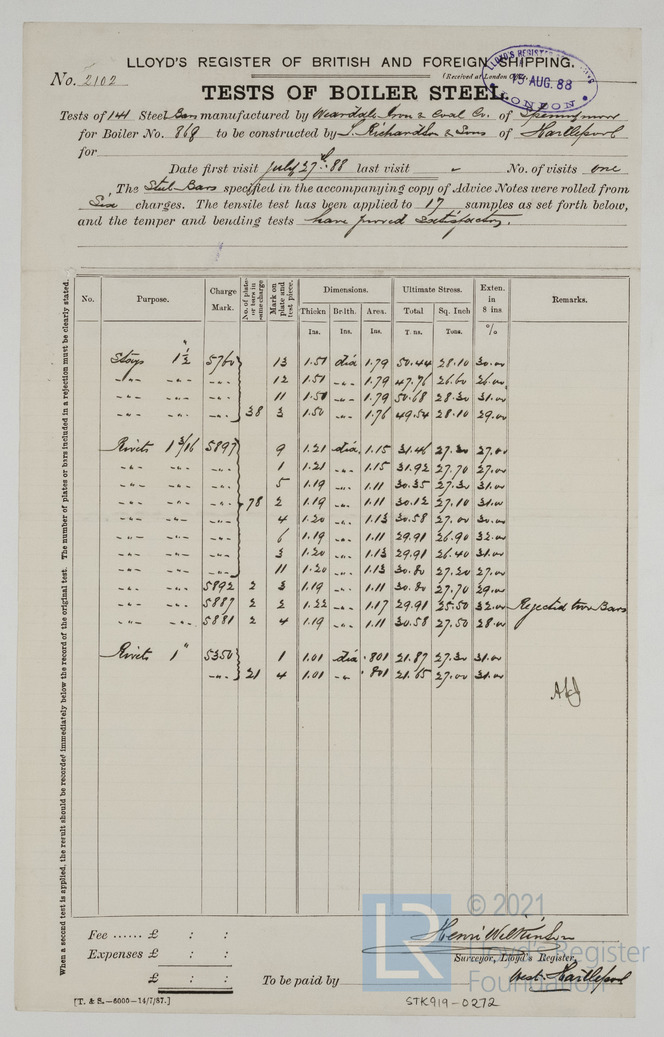 LLOYD'S REGISTER OF BRITISH AND FOREIGN SHIPPING.
No. 2102
(Received at London Office
LLOYD'S REGISTER
15 AUG. 88
LONDON
TESTS OF BOILER STEEL
Tests of 144 Steel Bars manufactured by Weardale Iron & Coal Co. of Spennymoor
for Boiler No. 868 to be constructed by T. Richardson & Sons of Hartlepool
for
Date first visit July 27th 88 last visit " No. of visits one
The Steel Bars specified in the accompanying copy of Advice Notes were rolled from
Six charges. The tensile test has been applied to 17 samples as set forth below,
and the temper and bending tests have proved satisfactory.
No. Purpose. Charge Mark. No. of plates or bars in same charge Mark on plate and test piece. Dimensions. Ultimate Stress. Exten. in 8 ins Remarks.
Thickn Br'dth. Area. Total Sq. Inch
Ins. Ins. Ins. Tons. Tons. %
Stays 1½" 5760 13 1.51 dia 1.79 50.44 28.10 30.00
-"- -"- -"- 12 1.51 -"- 1.79 47.76 26.60 26.00
-"- -"- -"- 11 1.51 -"- 1.79 50.68 28.30 31.00
-"- -"- -"- 38 3 1.50 -"- 1.76 49.54 28.10 29.00
Rivets 1 3/16 5897 9 1.21 dia. 1.15 31.46 27.30 27.00
-"- -"- -"- 1 1.21 -"- 1.15 31.92 27.70 27.00
-"- -"- -"- 5 1.19 -"- 1.11 30.35 27.30 31.00
-"- -"- -"- 78 2 1.19 -"- 1.11 30.12 27.10 31.00
-"- -"- -"- 4 1.20 -"- 1.13 30.58 27.00 30.00
-"- -"- -"- 6 1.19 -"- 1.11 29.91 26.90 32.00
-"- -"- -"- 3 1.20 -"- 1.13 29.91 26.40 31.00
-"- -"- -"- 11 1.20 -"- 1.13 30.80 27.20 27.00
-"- -"- 5892 2 3 1.19 -"- 1.11 30.80 27.70 29.00
-"- -"- 5887 2 2 1.22 -"- 1.17 29.91 25.50 32.00 Rejected two Bars
-"- -"- 5881 2 4 1.19 -"- 1.11 30.58 27.50 28.00
Rivets 1" 5350 1 1.01 dia .801 21.87 27.30 31.00
-"- 21 4 1.01 -"- .801 21.65 27.00 31.00
When a second test is applied, the result should be recorded immediately below the record of the original test. The number of plates or bars included in a rejection must be clearly stated.
Fee ...... £ : :
Expenses £ : :
£ : :
To be paid by
Henri Wilkinson
Surveyor, Lloyd's Register,
West Hartlepool
[T. & S.—6000—14/7/87.]
STK919-0272
LR
© 2021
Lloyd's Register
Foundation